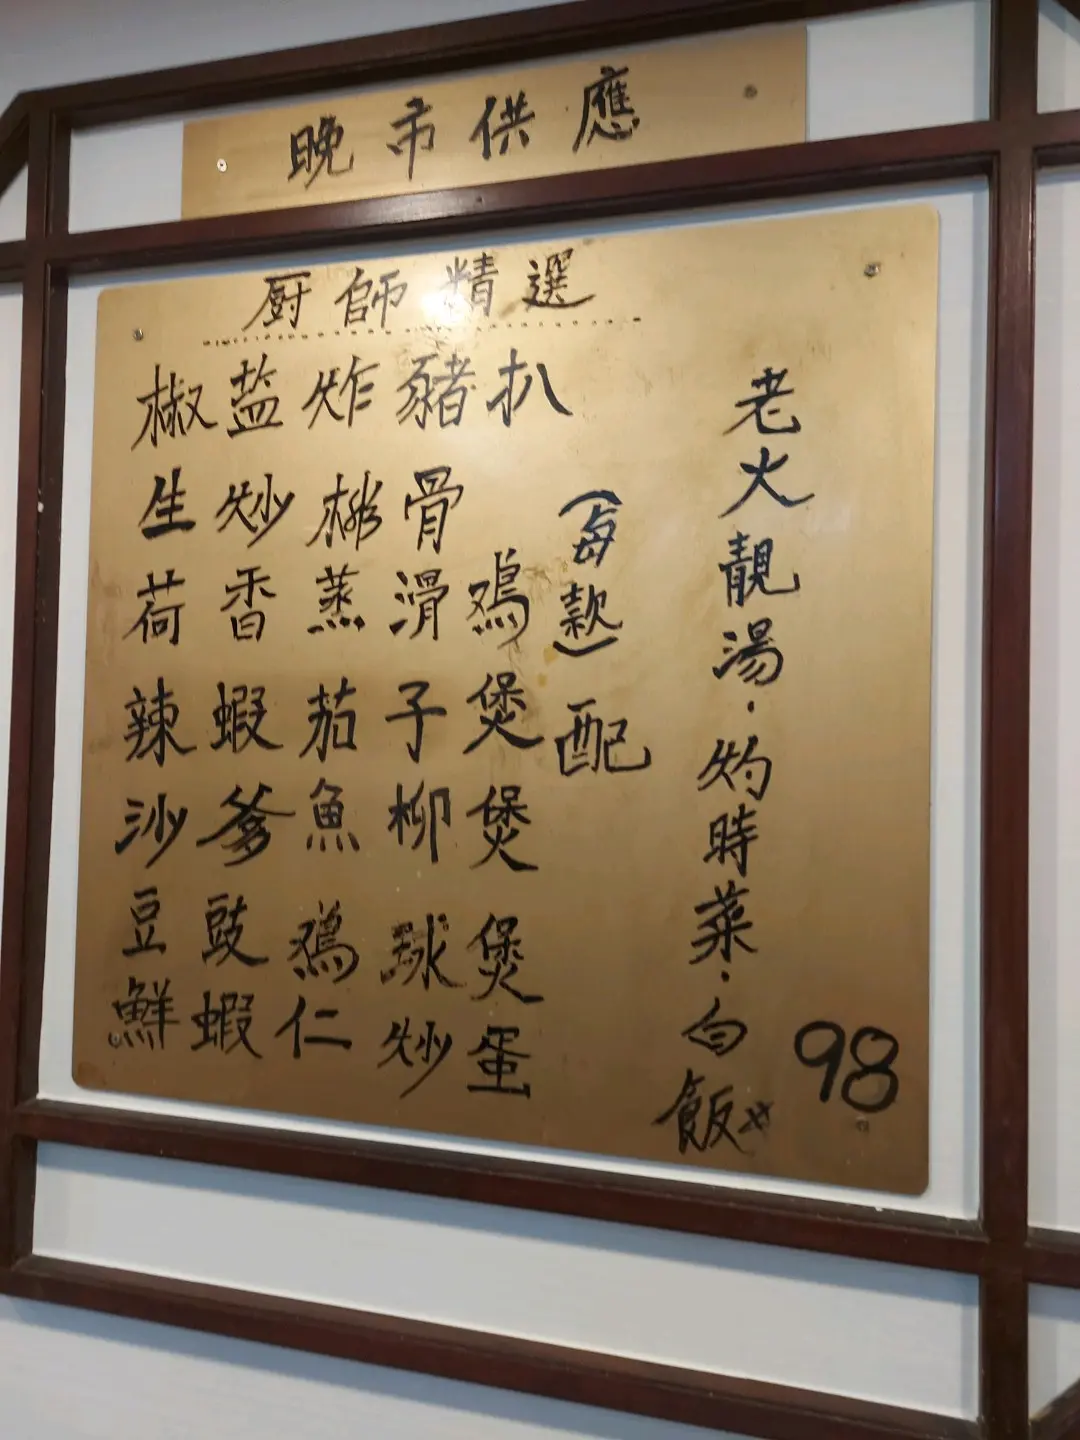 晚市供應
厨師精選
椒盐炸豬扒
生炒排骨
荷香蒸滑鷄煲
辣蝦茄子煲
沙爹魚柳煲
豆豉鷄球煲
鮮蝦仁炒蛋
（每款）配
老火靚湯.灼時菜.白飯
98